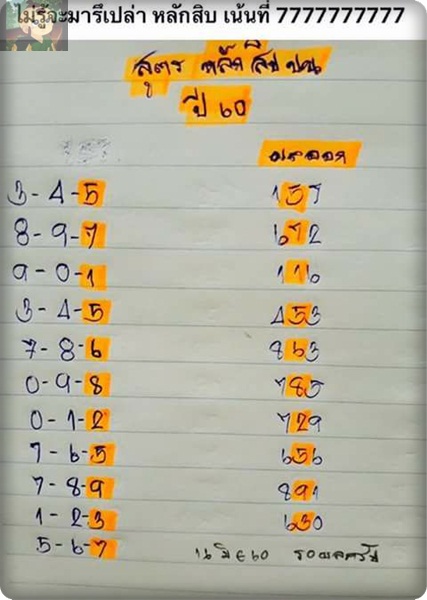 ไม่รู้จะมารึเปล่า หลักสิบ เน้นที่ 7777777777
สูตร หลักสิบบน
ปี ๖๐
ผลออก
3-4-5 157
8-9-7 672
9-0-1 116
3-4-5 453
7-8-6 863
0-9-8 785
0-1-2 729
7-6-5 656
7-8-9 891
1-2-3 630
5-6-7 16 มิย 60 รอผลครับ